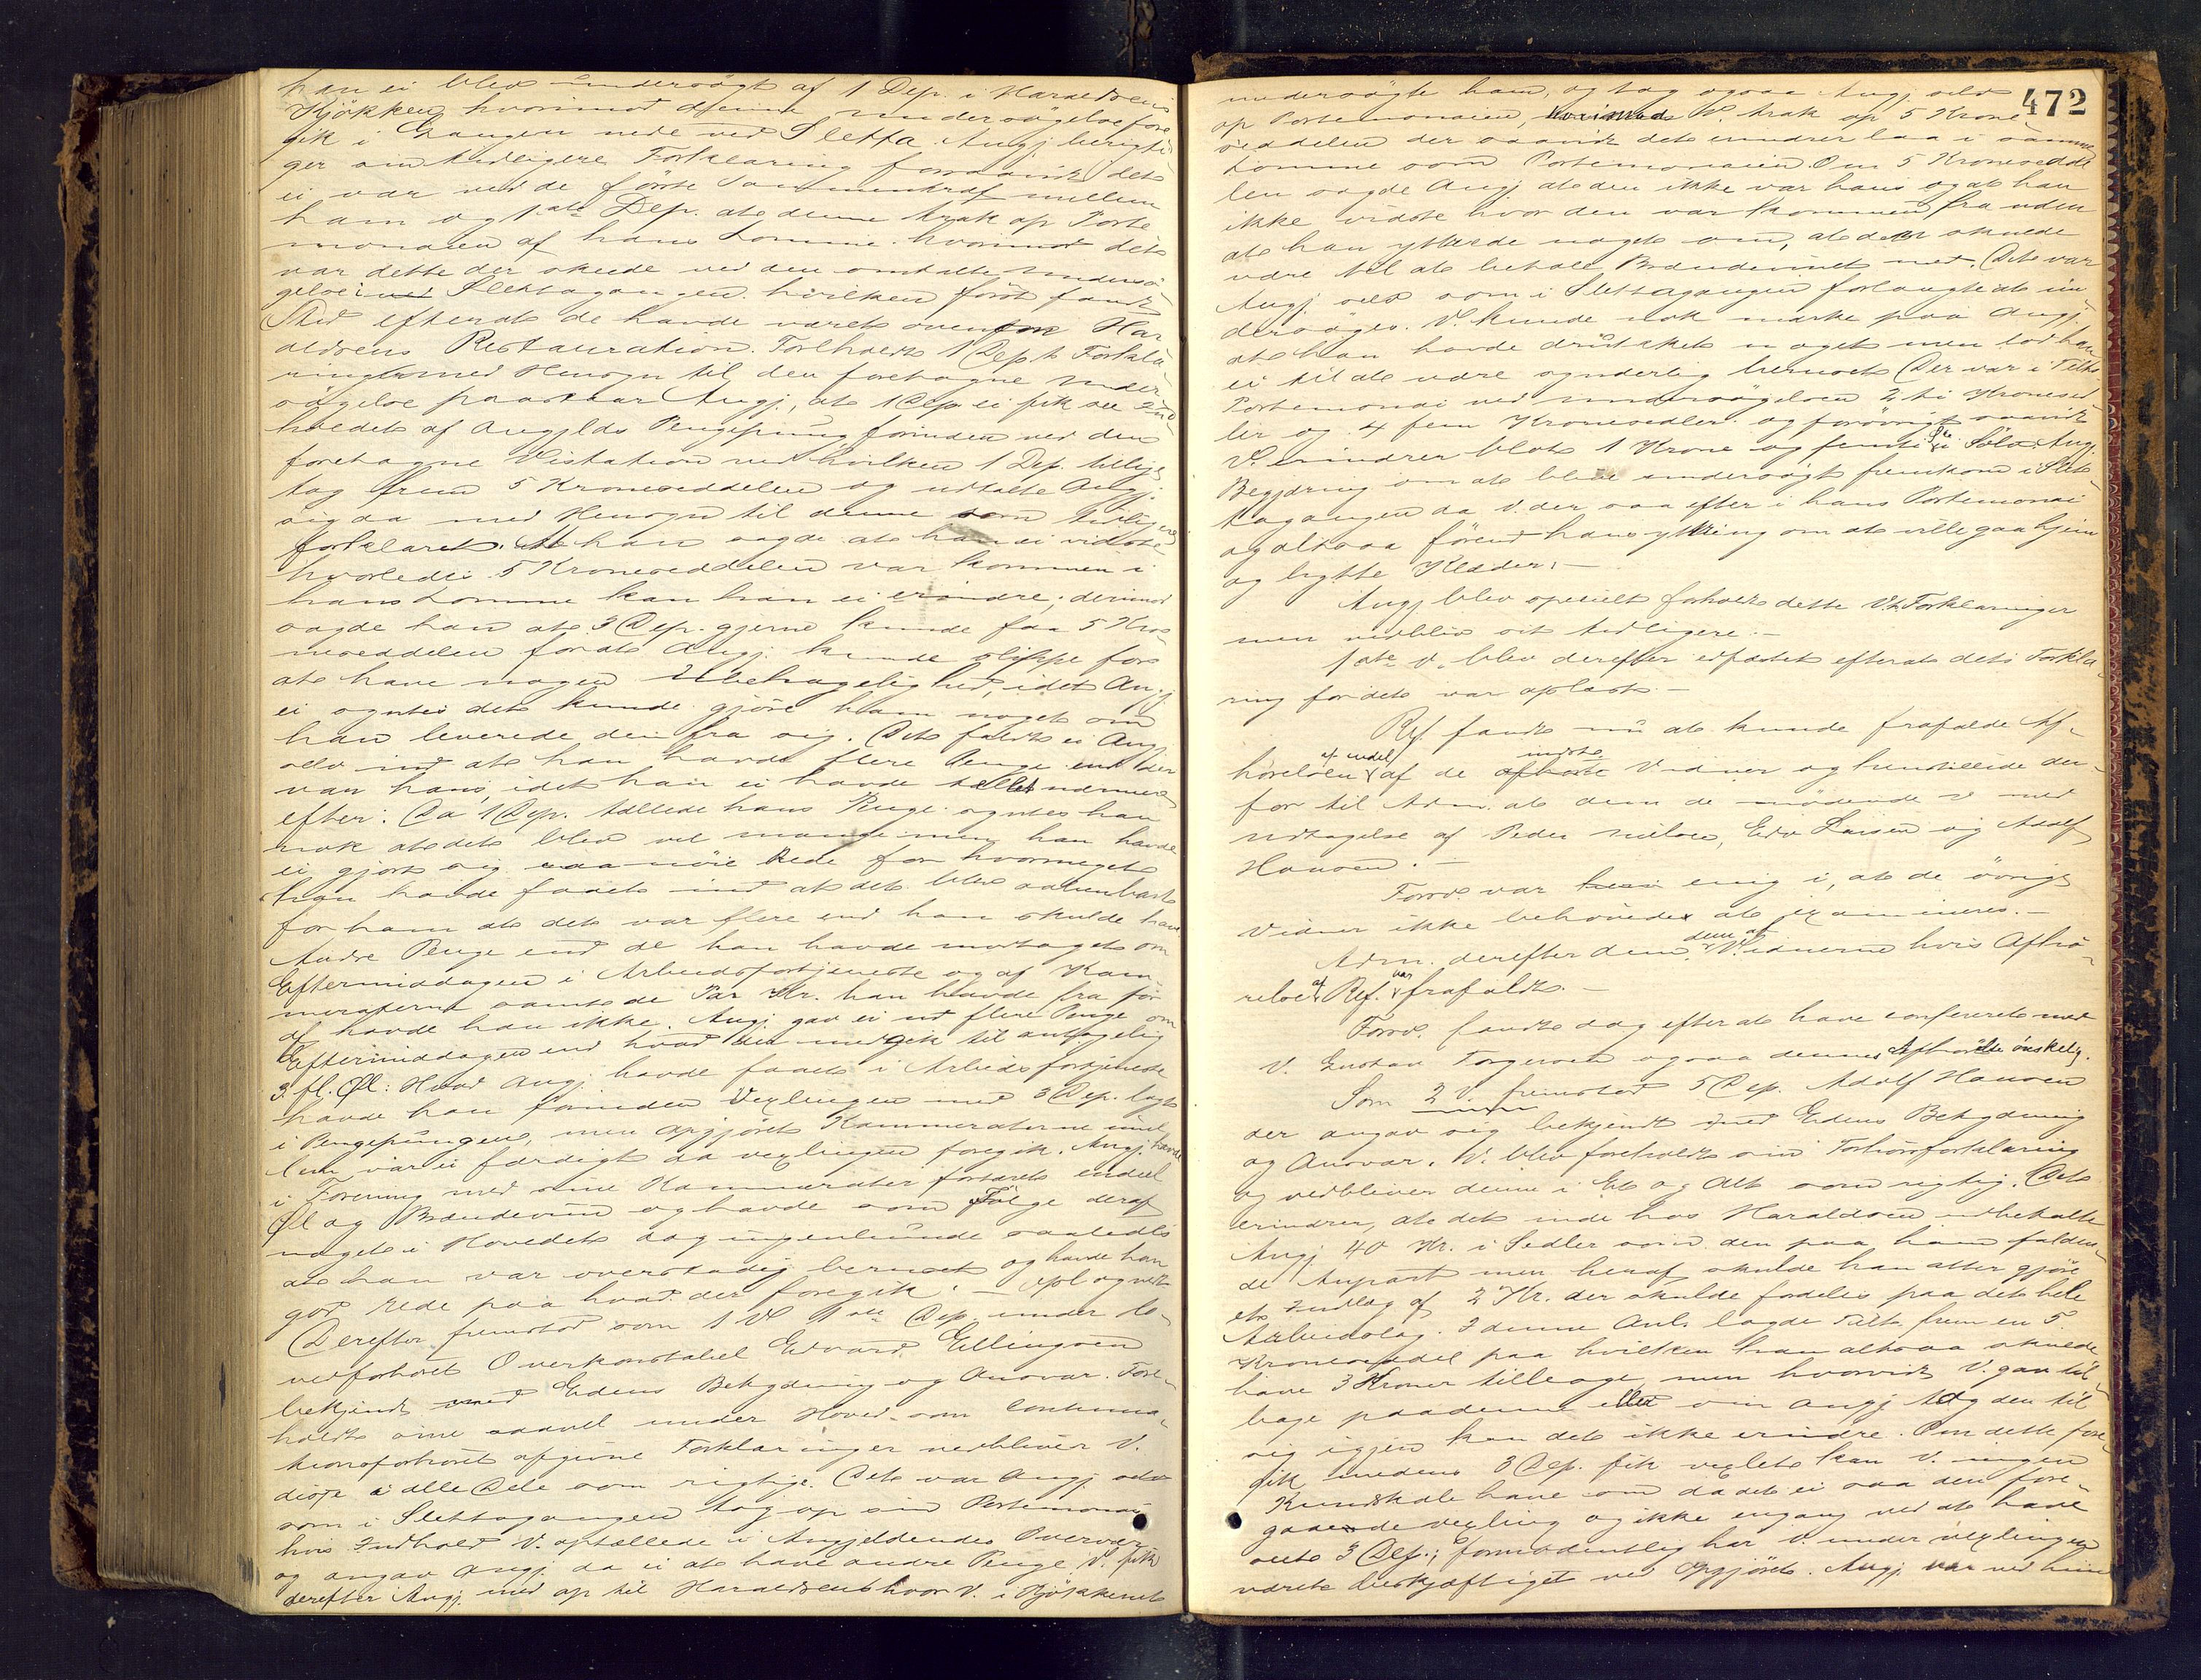 han ei blev undersögt af 1 Dep. i Haraldsens
Kjökken hvorimod denne undersögelse fore
gik i Gangen nede ved Sletta. Angj. berigti
ger sin tidligere Forklaring forsaavidt det
ei var ved de förste Sammentræf mellem
ham og 1ste Dep. at denne trak op Porte
monaien af hans Lomme hvorimod det
var dette der skeede ved den omtalte undersö
gelse i Slettagangen hvilken först fandt
Sted efterat de havde været ovenfor Har
aldsens Restauration. Foreholdt 1 Dep.s Forkla
ringer med Hensyn til den foretagne under
sögelse paastaar Angj., at 1 Dep. ei fik se Ind
holdet af Angjlds Pengepung forinden ved den
foretagne Visitation ved hvilken 1 Dep. tillige
tog frem 5 Kroneseddelen og udtalte Angj.
sig da med Hensyn til denne som tidligere
forklaret. At han sagde at han ei vidste
hvorledes 5 Kroneseddelen var kommen i
hans Lomme kan han ei erindre; derimod
sagde han at 3 Dep. gjerne kunde faa 5 Kro
neseddelen forat Angj. kunde slippe for
at have nogen Ubehagelighed, idet Angj.
ei syntes det kunde gjöre ham noget om
han leverede den fra sig. Det faldt ei Angj.
selv ind at han havde flere Penge end der
var hans, idet han ei havde tællet nærmere
efter. Da 1 Dep. tællede hans Penge syntes han
nok at det blev vel mange men han havde
ei gjort sig saa nöie Rede for hvormeget
han havde faaet ind at det blev aabenbart
for ham at det var flere end han skulde have
Andre Penge end de han havde modtaget om
Eftermiddagen i Arbeidsfortjeneste og af Kam
meraterne samt de Par Kr. han havde fra för
af havde han ikke. Angj. gav ei ud flere Penge om
Eftermiddagen end hvad der medgik til antagelig
3 fl. Öl. Hvad Angj. havde faaet i Arbeidsfortjeneste
havde han forinden Vexlingen med 3 Dep. lagt
i Pengepungen, men Opgjöret Kammeraterne imel
lem var ei færdigt da vexlingen foregik. Angj. havde
i Forening med sine Kammerater fortæret endel
Öl og Brændevin og havde som Fölge deraf
noget i Hovedet dog ingenlunde saaledes
at han var overstadig beruset og havde han
god rede paa hvad der foregik. — Opl. og vedt.
Derefter fremstod som 1 V. 1ste Dep. under
Overkonstabel Edvard Ellingsen
bekjendt med Edens Betydning og Ansvar. Fore
holdt sine saavel under Hoved- som Continua
tionsforhöret afgivne Forklaringer vedbliver V.
disse i alle Dele som rigtige. Det var Angj. selv
som i Slettagangen tog op sin Portemonai
hvis Indhold V. optællede i Angjeldendes Overvær
og angav Angj. da ei at have andre Penge. V. fik
derefter Angj. med op til Haraldsens hvor V. i Kjökkenet
472
undersögte ham, og tog ogsaa Angj. selv
op Portemonaien, hvorimod V. trak op 5 Krone
seddelen der saavidt det erindrer laa i samme
Lomme som Portemonaien. Om 5 Kronesedde
len sagde Angj. at den ikke var hans og at han
ikke vidste hvor den var kommen fra uden
at han ytrede noget om, at den skulde
være til at betale Brændevinet med. Det var
Angj. selv som i Slettagangen forlangte at un
dersöges. V. kunde nok mærke paa Angj.
at han havde drukket noget men lod han
ei til at være synderlig beruset. Der var i Tilt.
Portemonai ved undersögelsen 2 ti Kronesed
ler og 4 fem Kronesedler og forövrigt saavidt
V. erindrer blot 1 Krone og femti Öre i Sölv. Angj.
Begjæring om at blive undersögt fremkom i Slet
tagangen da V. der saa efter i hans Portemonai
og altsaa förend hans yttring om at ville gaa hjem
og bytte Klæder. —
Angj. blev specielt foreholdt dette V.s Forklaringer
men vedblev sit tidligere. —
1ste V. blev derefter edfæstet efterat dets Forkla
ring for det var oplæst. —
Ref. fandt nu at kunde frafalde Af
hörelsen af endel af de indste Vidner og henstillede der
for til Adm. at dem de mödende V. med
Undtagelse af Peder Nielsen, Edv. Larsen og Adolf
Hansen. —
Forsv. var enig i, at de övrige
Vidner ikke behövedes at examineres. —
Adm. derefter dem af Vidnerne hvis Afhö
relse af Ref. var frafaldt. —
Forsv. fandt dog efter at have confereret med
V. Gustav Torgersen ogsaa dennes Afhörelse önskelig.
Som 2 V. fremstod 5 Dep. Adolf Hansen
der angav sig bekjendt med Edens Betydning
og Ansvar. V. blev foreholdt sin Forhörsforklaring
og vedbliver denne i Et og Alt som rigtig. Det
erindrer, at det inde hos Haraldsen udbetalte
Angj. 40 Kr. i Sedler som den paa ham falden
de Anpart men heraf skulde han atter gjöre
et Indlæg af 2 Kr. der skulde fordeles paa det hele
Arbeidslag. I denne Anl. lagde Tilt. frem en 5
Kroneseddel paa hvilken han altsaa skulde
have 3 Kroner tilbage, men hvorvidt V. gav til
bage paa denne eller om Angj. tog den til
sig igjen kan det ikke erindre. Om dette fore
gik medens 3 Dep. fik vexlet kan V. ingen
Kundskab have om da det ei saa den fore
gaaende vexling og ikke engang ved at have
seet 3 Dep.; formodentlig har V. under vexlingen
været beskjæftiget ved Opgjöret. Angj. var ved